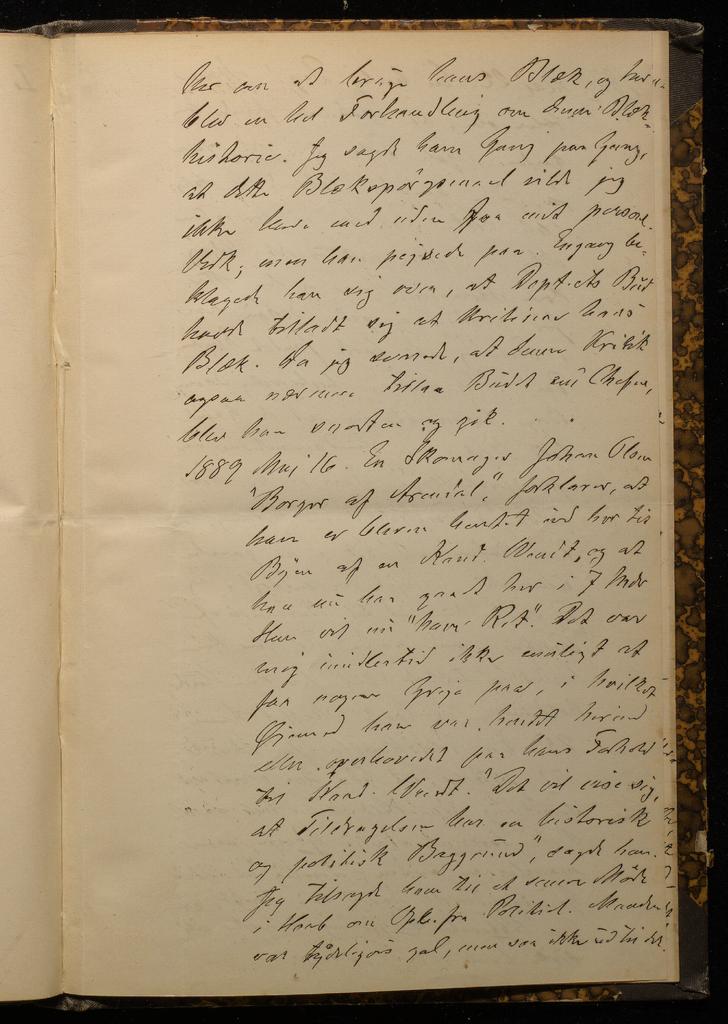 her om at bruge hans Blæk, og der
blev en hel Forhandling om denne Blæk-
historie. Jeg sagde ham Gang paa Gang,
at dette Blækspörgsmaal vilde jeg
ikke have med uden fra mit person.
Vedk; men han pejsede paa. Engang be-
klagede han sig over, at Dept-ets Bud
havde tilladt sig at kritisere hans
Blæk. Da jeg svarede, at denne Kritik
ogsaa nærmere tillaa Budet end Chefen,
blev han svarten og gik.
1889 Maj 16. En Skomager Johan Olsen
"Borger af Arendal," forklarer, at
han er bleven hentet ind her til
Byen af en Kand. Wendt, og at
han nu har gaaet her i 7 Mdr
Han vil nu "have Ret". Det var
mig imidlertid ikke muligt at
faa nogen Greje paa, i hvilket
Øjemed han var hentet herind
eller overhovedet paa hans Forhold
til Kand. Wendt. "Det vil vise sig,
at Tildragelsen har en historisk
og politisk Baggrund", sagde han.
Jeg tilsagde ham til et senere Møde
i Haab om Opl. fra Politiet. Manden
var tydeligvis gal, men saa ikke ud til det.